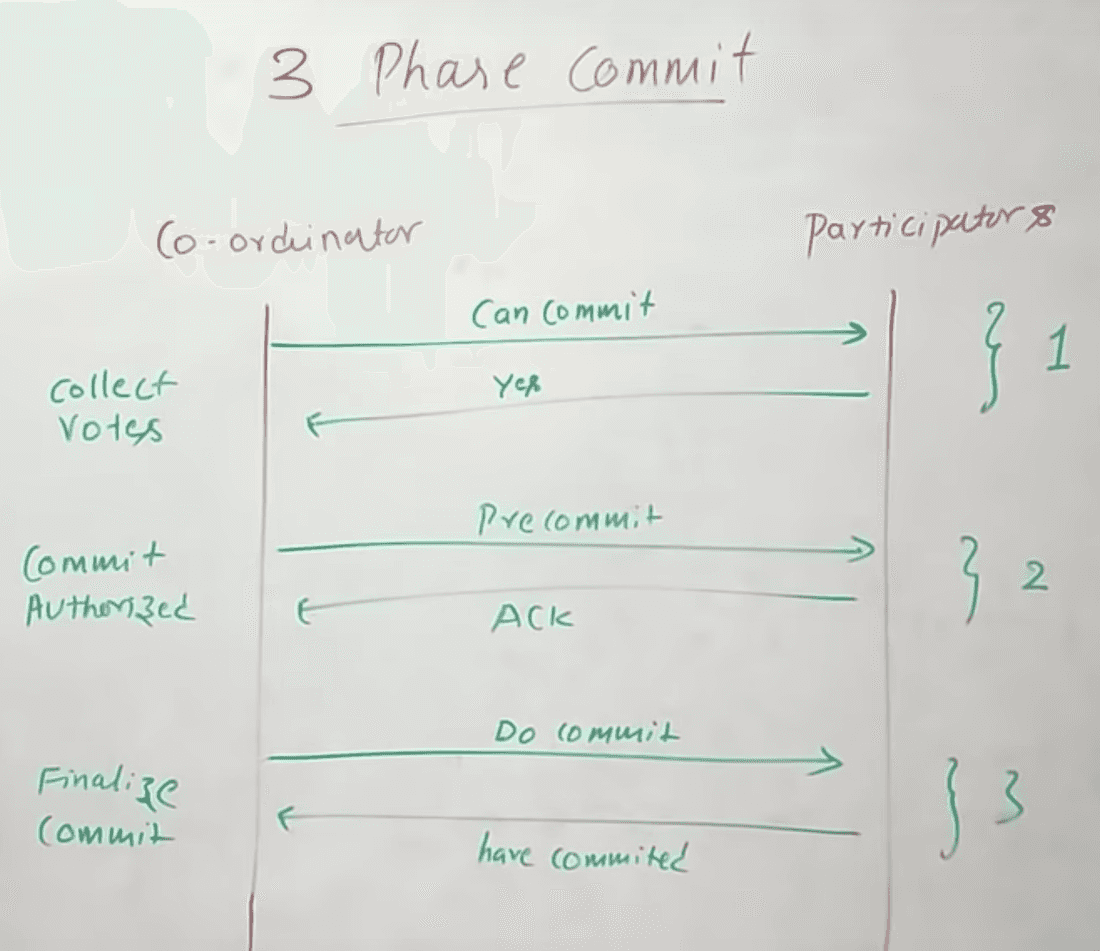 3 Phase Commit
Co-ordinator
Participators
Can Commit
1
Collect
Votes
Yes
Pre commit
Commit
Authorized
2
ACK
Do commit
Finalize
Commit
3
have commited